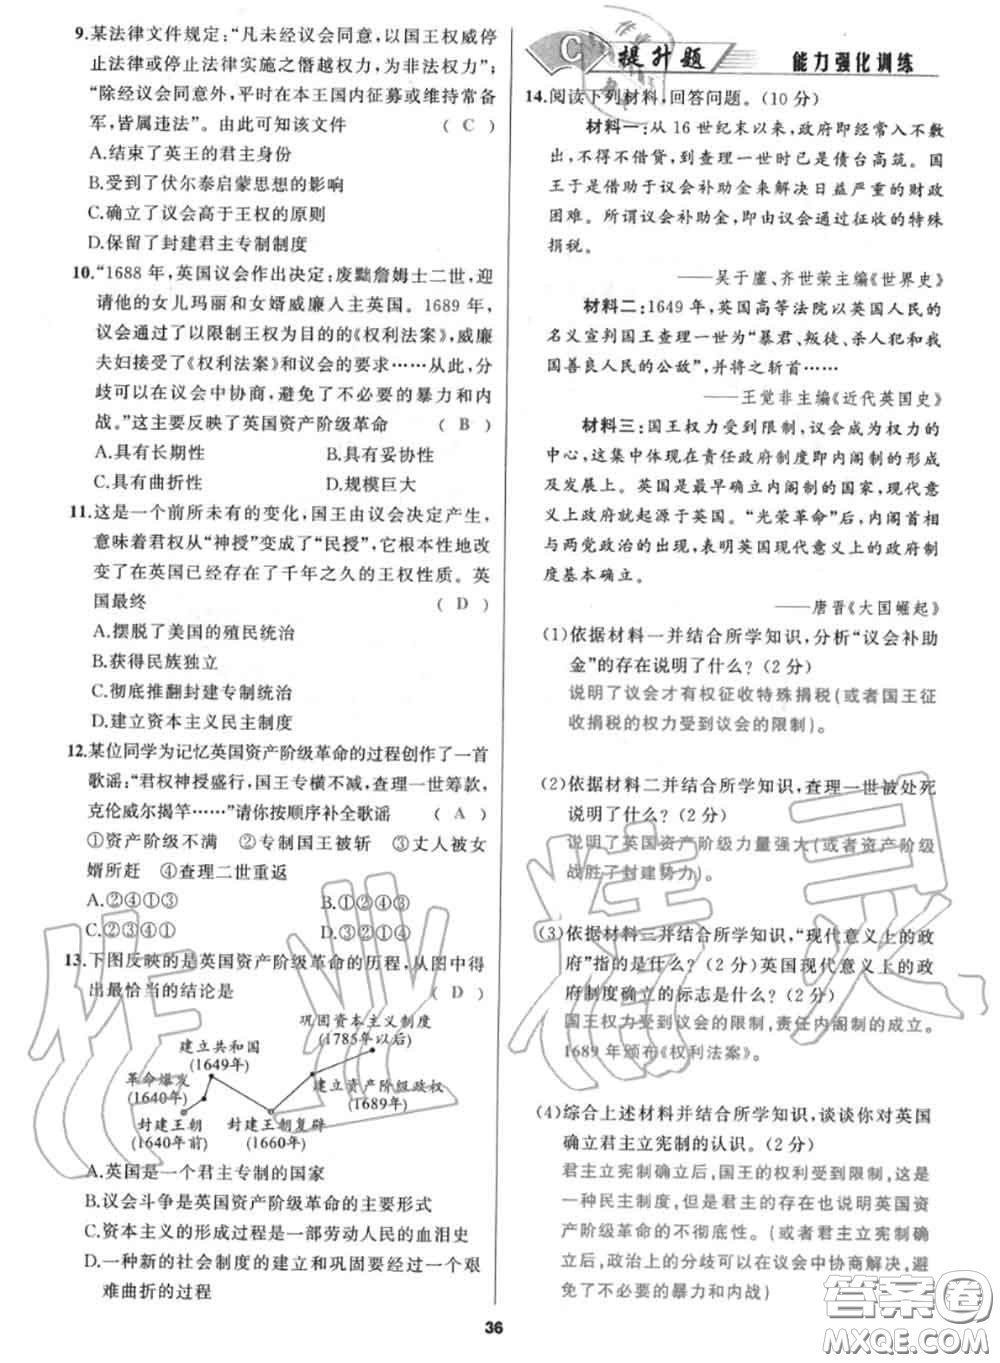 9.某法律文件规定：“凡未经议会同意，以国王权威停
止法律或停止法律实施之僭越权力，为非法权力”；
“除经议会同意外，平时在本王国内征募或维持常备
军，皆属违法”。由此可知该文件 （ C ）
A.结束了英王的君主身份
B.受到了伏尔泰启蒙思想的影响
C.确立了议会高于王权的原则
D.保留了封建君主专制制度
10.“1688 年，英国议会作出决定：废黜詹姆士二世，迎
请他的女儿玛丽和女婿威廉入主英国。1689 年，
议会通过了以限制王权为目的的《权利法案》，威廉
夫妇接受了《权利法案》和议会的要求……从此，分
歧可以在议会中协商，避免了不必要的暴力和内
战。”这主要反映了英国资产阶级革命 （ B ）
A.具有长期性 B.具有妥协性
C.具有曲折性 D.规模巨大
11.这是一个前所未有的变化，国王由议会决定产生，
意味着君权从“神授”变成了“民授”，它根本性地改
变了在英国已经存在了千年之久的王权性质。英
国最终 （ D ）
A.摆脱了美国的殖民统治
B.获得民族独立
C.彻底推翻封建专制统治
D.建立资本主义民主制度
12.某位同学为记忆英国资产阶级革命的过程创作了一首
歌谣：“君权神授盛行，国王专横不减，查理一世筹款，
克伦威尔揭竿……”请你按顺序补全歌谣 （ A ）
①资产阶级不满 ②专制国王被斩 ③丈人被女
婿所赶 ④查理二世重返
A.①②④③ B.①②④③
C.②③④① D.③②①④
13.下图反映的是英国资产阶级革命的历程，从图中得
出最恰当的结论是 （ D ）
巩固资本主义制度
(1785年以后)
建立共和国
(1649年)
革命爆发
(1640年)
建立资产阶级政权
(1689年)
封建王朝
(1640年前)
封建王朝复辟
(1660年)
A.英国是一个君主专制的国家
B.议会斗争是英国资产阶级革命的主要形式
C.资本主义的形成过程是一部劳动人民的血泪史
D.一种新的社会制度的建立和巩固要经过一个艰
难曲折的过程
C 提升题 能力强化训练
14.阅读下列材料，回答问题。（10 分）
材料一：从 16 世纪末以来，政府即经常入不敷
出，不得不借贷，到查理一世时已是债台高筑。国
王于是借助于议会补助金来解决日益严重的财政
困难。所谓议会补助金，即由议会通过征收的特殊
捐税。
——吴于廑、齐世荣主编《世界史》
材料二：1649 年，英国高等法院以英国人民的
名义宣判国王查理一世为“暴君、叛徒、杀人犯和我
国善良人民的公敌”，并将之斩首……
——王觉非主编《近代英国史》
材料三：国王权力受到限制，议会成为权力的
中心，这集中体现在责任政府制度即内阁制的形成
及发展上。英国是最早确立内阁制的国家，现代意
义上政府就起源于英国。“光荣革命”后，内阁首相
与两党政治的出现，表明英国现代意义上的政府制
度基本确立。
——唐晋《大国崛起》
(1)依据材料一并结合所学知识，分析“议会补助
金”的存在说明了什么？（2 分）
说明了议会才有权征收特殊捐税（或者国王征
收捐税的权力受到议会的限制）。
(2)依据材料二并结合所学知识，查理一世被处死
说明了什么？（2 分）
说明了英国资产阶级力量强大（或者资产阶级
战胜了封建势力）。
(3)依据材料三并结合所学知识，“现代意义上的政
府”指的是什么？（2 分）英国现代意义上的政
府制度确立的标志是什么？（2 分）
国王权力受到议会的限制，责任内阁制的成立。
1689 年颁布《权利法案》。
(4)综合上述材料并结合所学知识，谈谈你对英国
确立君主立宪制的认识。（2 分）
君主立宪制确立后，国王的权利受到限制，这是
一种民主制度，但是君主的存在也说明英国资
产阶级革命的不彻底性。（或者君主立宪制确
立后，政治上的分歧可以在议会中协商解决，避
免了不必要的暴力和内战）
36
作业精灵
答案圈
MXQE.COM